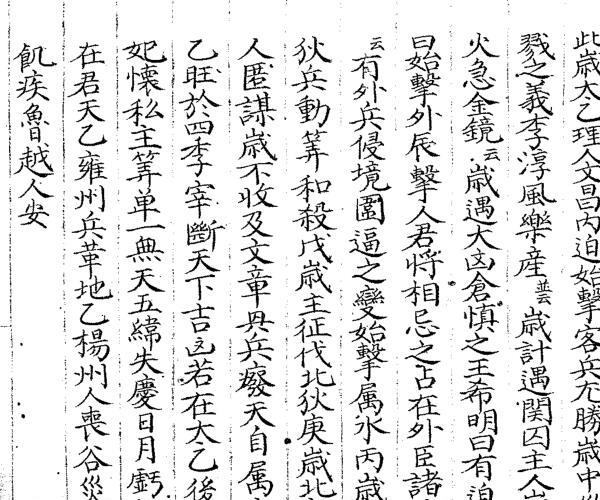 此歳太乙理人文昌内迫始擊客兵尤勝歳中
戮之義李淳風樂産普云歳計遇関囚主人
火急金鏡云歳遇大凶倉慎之王希明曰有迫
曰始擊外辰擊人君将相忌之占在外臣諸
云有外兵侵境圍逼之變始擊属水丙歳
狄兵動筭和殺戊歳主征伐北狄庚歳北
人匿謀歳不收及文章毋兵癈天自属
乙旺於四季宰斷天下吉凶若在太乙後
妃懷私主筭单一無天五緯失慶日月虧
在君天乙雍州兵革地乙楊州人喪谷災
飢疾魯越人安